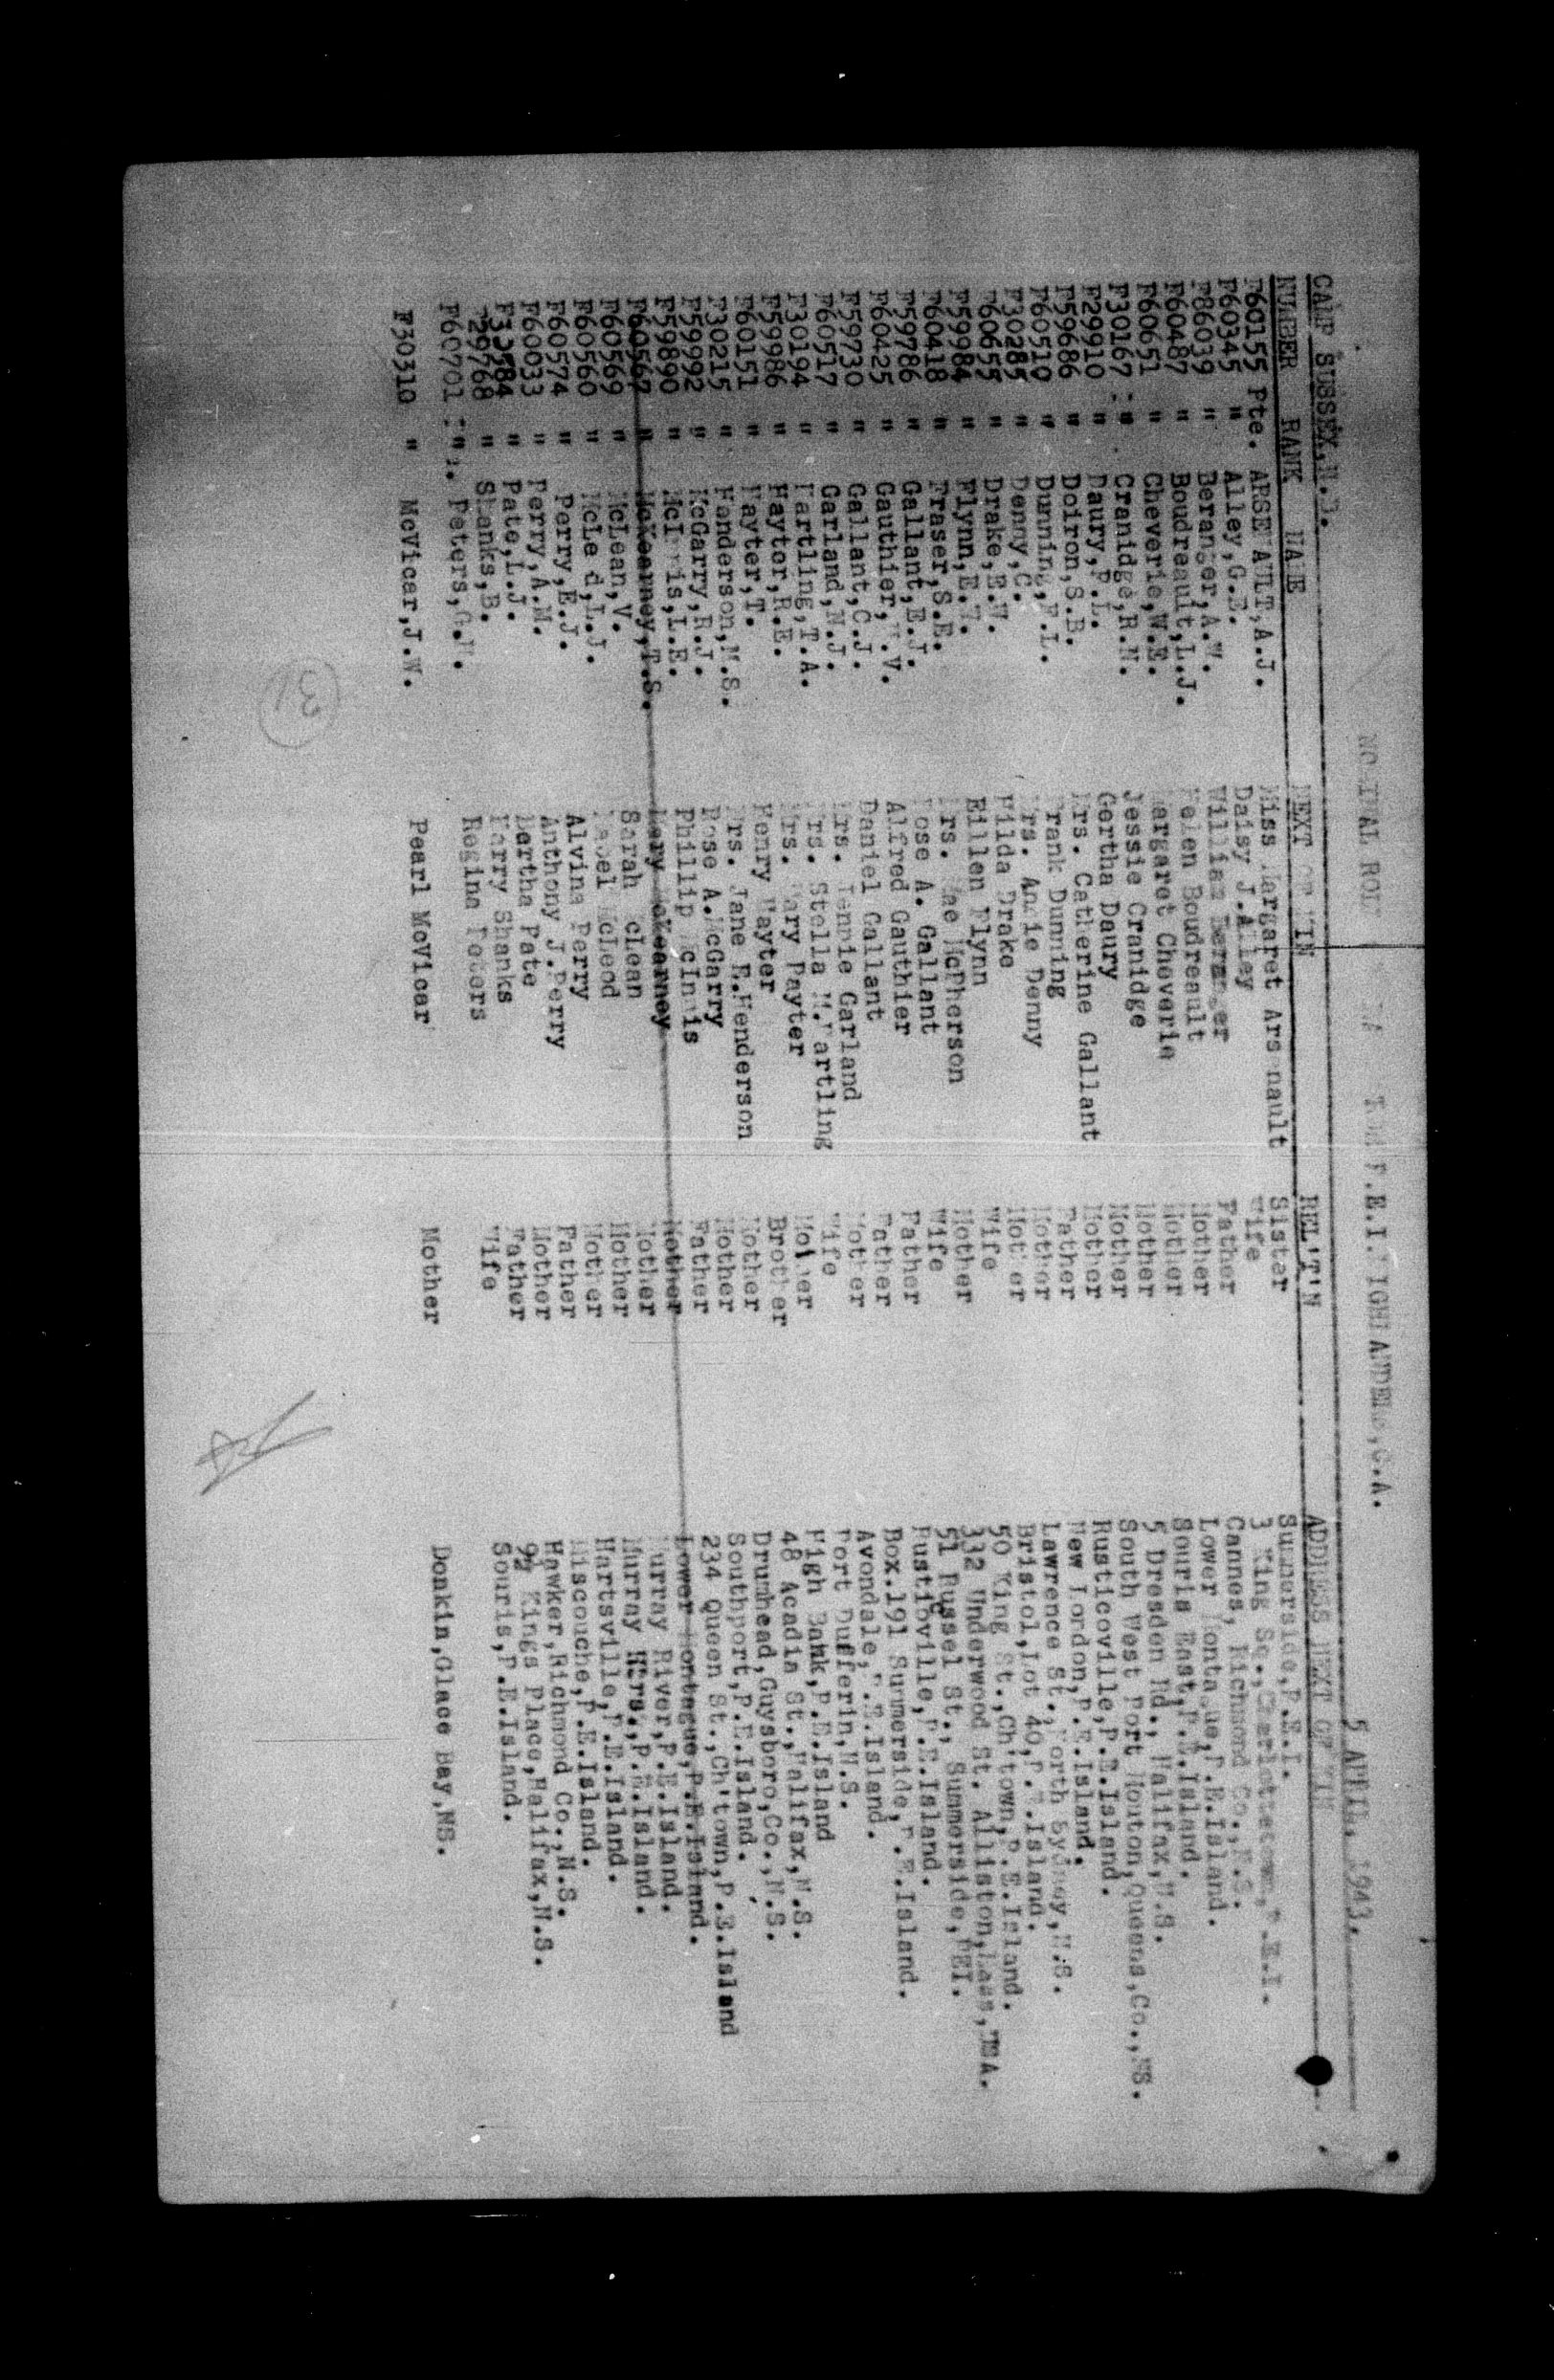 NOMINAL ROLL P.E.I.HIGHLANDERS,C.A.
CAMP SUSSEX,N.B. 5 APRIL, 1943.
NUMBER RANK NAME NEXT OF KIN REL'T'N ADDRESS NEXT OF KIN
F60155 Pte. ARSENAULT,A.J. Miss Margaret Arsenault Sister Summerside,P.E.I.
F60345 " Alley,G.E. Daisy J.Alley Wife 3 King Sq.,Charlottetown,P.E.I.
F86039 " Beranger,A.W. William Beranger Father Cannes, Richmond Co.,N.S.
F60487 " Boudreault,L.J. Helen Boudreault Mother Lower Montague,P.E.Island.
F60651 " Cheverie,W.E. Margaret Cheverie Mother Souris East,P.E.Island.
F30167 " Cranidge,R.N. Jessie Cranidge Mother 5 Dresden Rd., Halifax,N.S.
F29910 " Daury,P.L. Gertha Daury Mother South West Port Mouton,Queens,Co.,NS.
F59686 " Doiron,S.B. Mrs. Catherine Gallant Mother Rusticoville,P.E.Island.
F60510 " Dunning,F.L. Frank Dunning Father New London,P.E.Island.
F30285 " Denny,C. Mrs. Annie Denny Mother Lawrence St.,North Sydney,N.S.
F60655 " Drake,E.W. Hilda Drake Mother Bristol,Lot 40,P.E.Island.
F59984 " Flynn,E.W. Eillen Flynn Wife 50 King St.,Ch'town,P.E.Island.
F60418 " Fraser,S.E. Mrs. Mae McPherson Mother 332 Underwood St. Alliston,Mass,USA.
F59786 " Gallant,E.J. Rose A. Gallant Wife 51 Russel St., Summerside,PEI.
F60425 " Gauthier,W.V. Alfred Gauthier Father Rusticville,P.E.Island.
F59730 " Gallant,C.J. Daniel Gallant Father Box.191 Summerside,P.E.Island.
F60517 " Garland,N.J. Mrs. Jennie Garland Mother Avondale,P.E.Island.
F30194 " Hartling,T.A. Mrs. Stella M.Hartling Wife Port Dufferin,N.S.
F59986 " Haytor,R.E. Mrs. Mary Hayter Mother High Bank,P.E.Island
F60151 " Hayter,T. Henry Hayter Brother 48 Acadia St.,Halifax,N.S.
F30215 " Henderson,M.S. Mrs. Jane E.Henderson Mother Drumhead,Guysboro,Co.,N.S.
F59992 " McGarry,R.J. Rose A.McGarry Mother Southport,P.E.Island.
F59890 " McInnis,L.E. Phillip McInnis Father 234 Queen St.,Ch'town,P.E.Island
F60567 " McKearney,T.S. Mary McKearney Mother Lower Montague,P.E.Island.
F60569 " McLean,V. Sarah McLean Mother Murray River,P.E.Island.
F60560 " McLeod,L.J. Mabel McLeod Mother Murray Hrb.,P.E.Island.
F60574 " Perry,E.J. Alvina Perry Mother Hartsville,P.E.Island.
F60033 " Perry,A.M. Anthony J.Perry Father Miscouche,P.E.Island.
F33584 " Pate,L.J. Bertha Pate Mother Hawker,Richmond Co.,N.S.
F29768 " Shanks,B. Harry Shanks Father 9½ Kings Place,Halifax,N.S.
F60701 " Peters,G.N. Regina Peters Wife Souris,P.E.Island.
F30310 " McVicar,J.W. Pearl McVicar Mother Donkin,Glace Bay,NS.